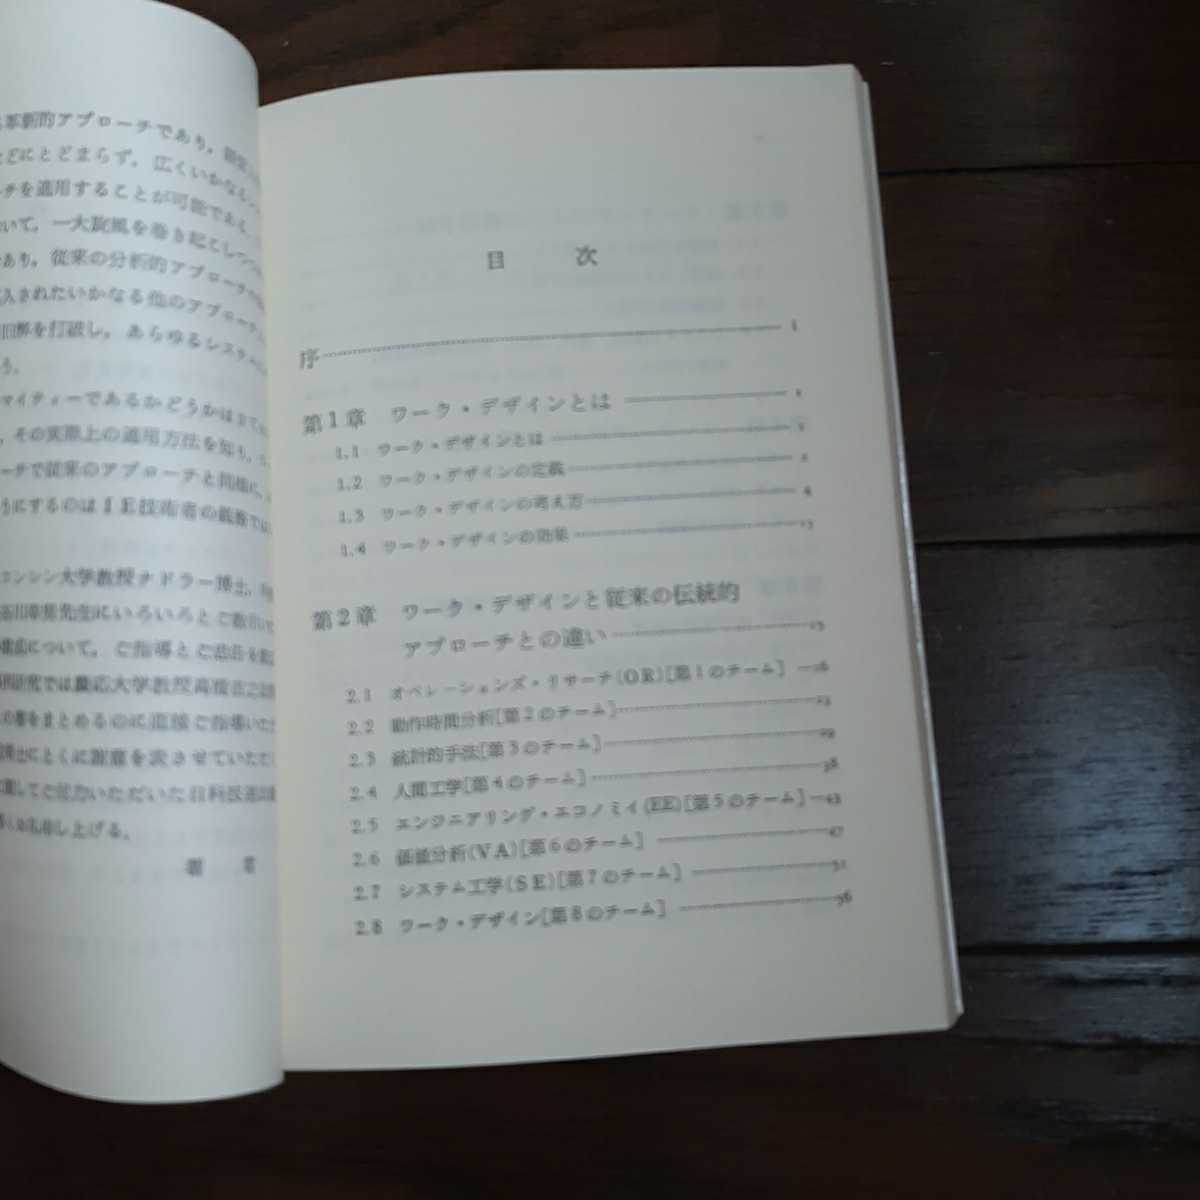 革新的アプローチであり，
などにとどまらず，広くいかなる
ーチを適用することが可能であ
おいて，一大旋風を巻き起こしつつ
あり，従来の分析的アプローチ
入されたいかなる他のアプローチ
旧弊を打破し，あらゆるシステム
う。
マイティーであるかどうかは
，その実際上の適用方法を知り，
ーチで従来のアプローチと同様に，
うにするのはIE技術者の義務で
コンシン大学教授ナドラー博士，
先生にいろいろとご教示
について，ご指導とご助言を
研究では慶応大学教授
の書をまとめるのに直接ご指導いただ
博士にとくに謝意を表させていただ
してご尽力いただいた日科技連
し上げる。
著 者
目 次
序 i
第1章 ワーク・デザインとは 1
1.1 ワーク・デザインとは 1
1.2 ワーク・デザインの定義 2
1.3 ワーク・デザインの考え方 4
1.4 ワーク・デザインの効果 13
第2章 ワーク・デザインと従来の伝統的
アプローチとの違い 15
2.1 オペレーションズ・リサーチ(OR)[第1のチーム] 16
2.2 動作時間分析[第2のチーム] 23
2.3 統計的手法[第3のチーム] 29
2.4 人間工学[第4のチーム] 38
2.5 エンジニアリング・エコノミイ(EE)[第5のチーム] 43
2.6 価値分析(VA)[第6のチーム] 47
2.7 システム工学(SE)[第7のチーム] 51
2.8 ワーク・デザイン[第8のチーム] 56